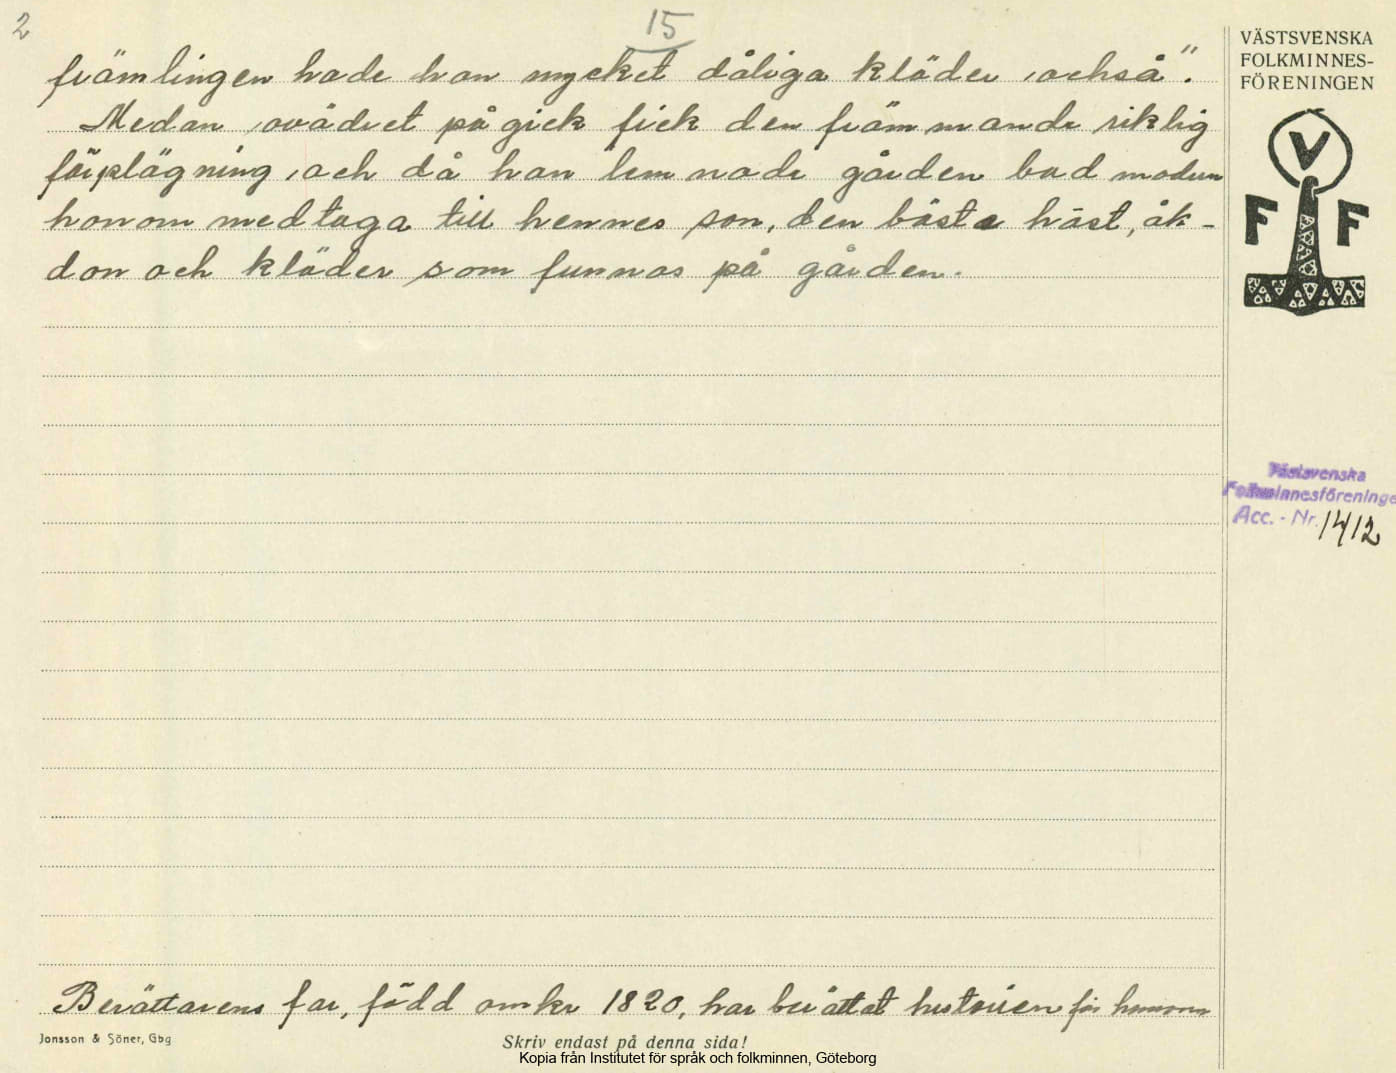 2
15
främlingen hade han mycket dåliga kläder också".
Medan ovädret pågick fick den främmande riklig
förplägning, och då han lemnade gården bad modern
honom medtaga till hennes son, den bästa häst, åk-
don och kläder som funnos på gården.
Berättarens far, född omkr 1820, har berättat historien för honom
Jonsson & Söner, Gbg
Skriv endast på denna sida!
Kopia från Institutet för språk och folkminnen, Göteborg
VÄSTSVENSKA
FOLKMINNES-
FÖRENINGEN
V
F F
Västsvenska
Folkminnesföreninge
Acc. - Nr. 1412